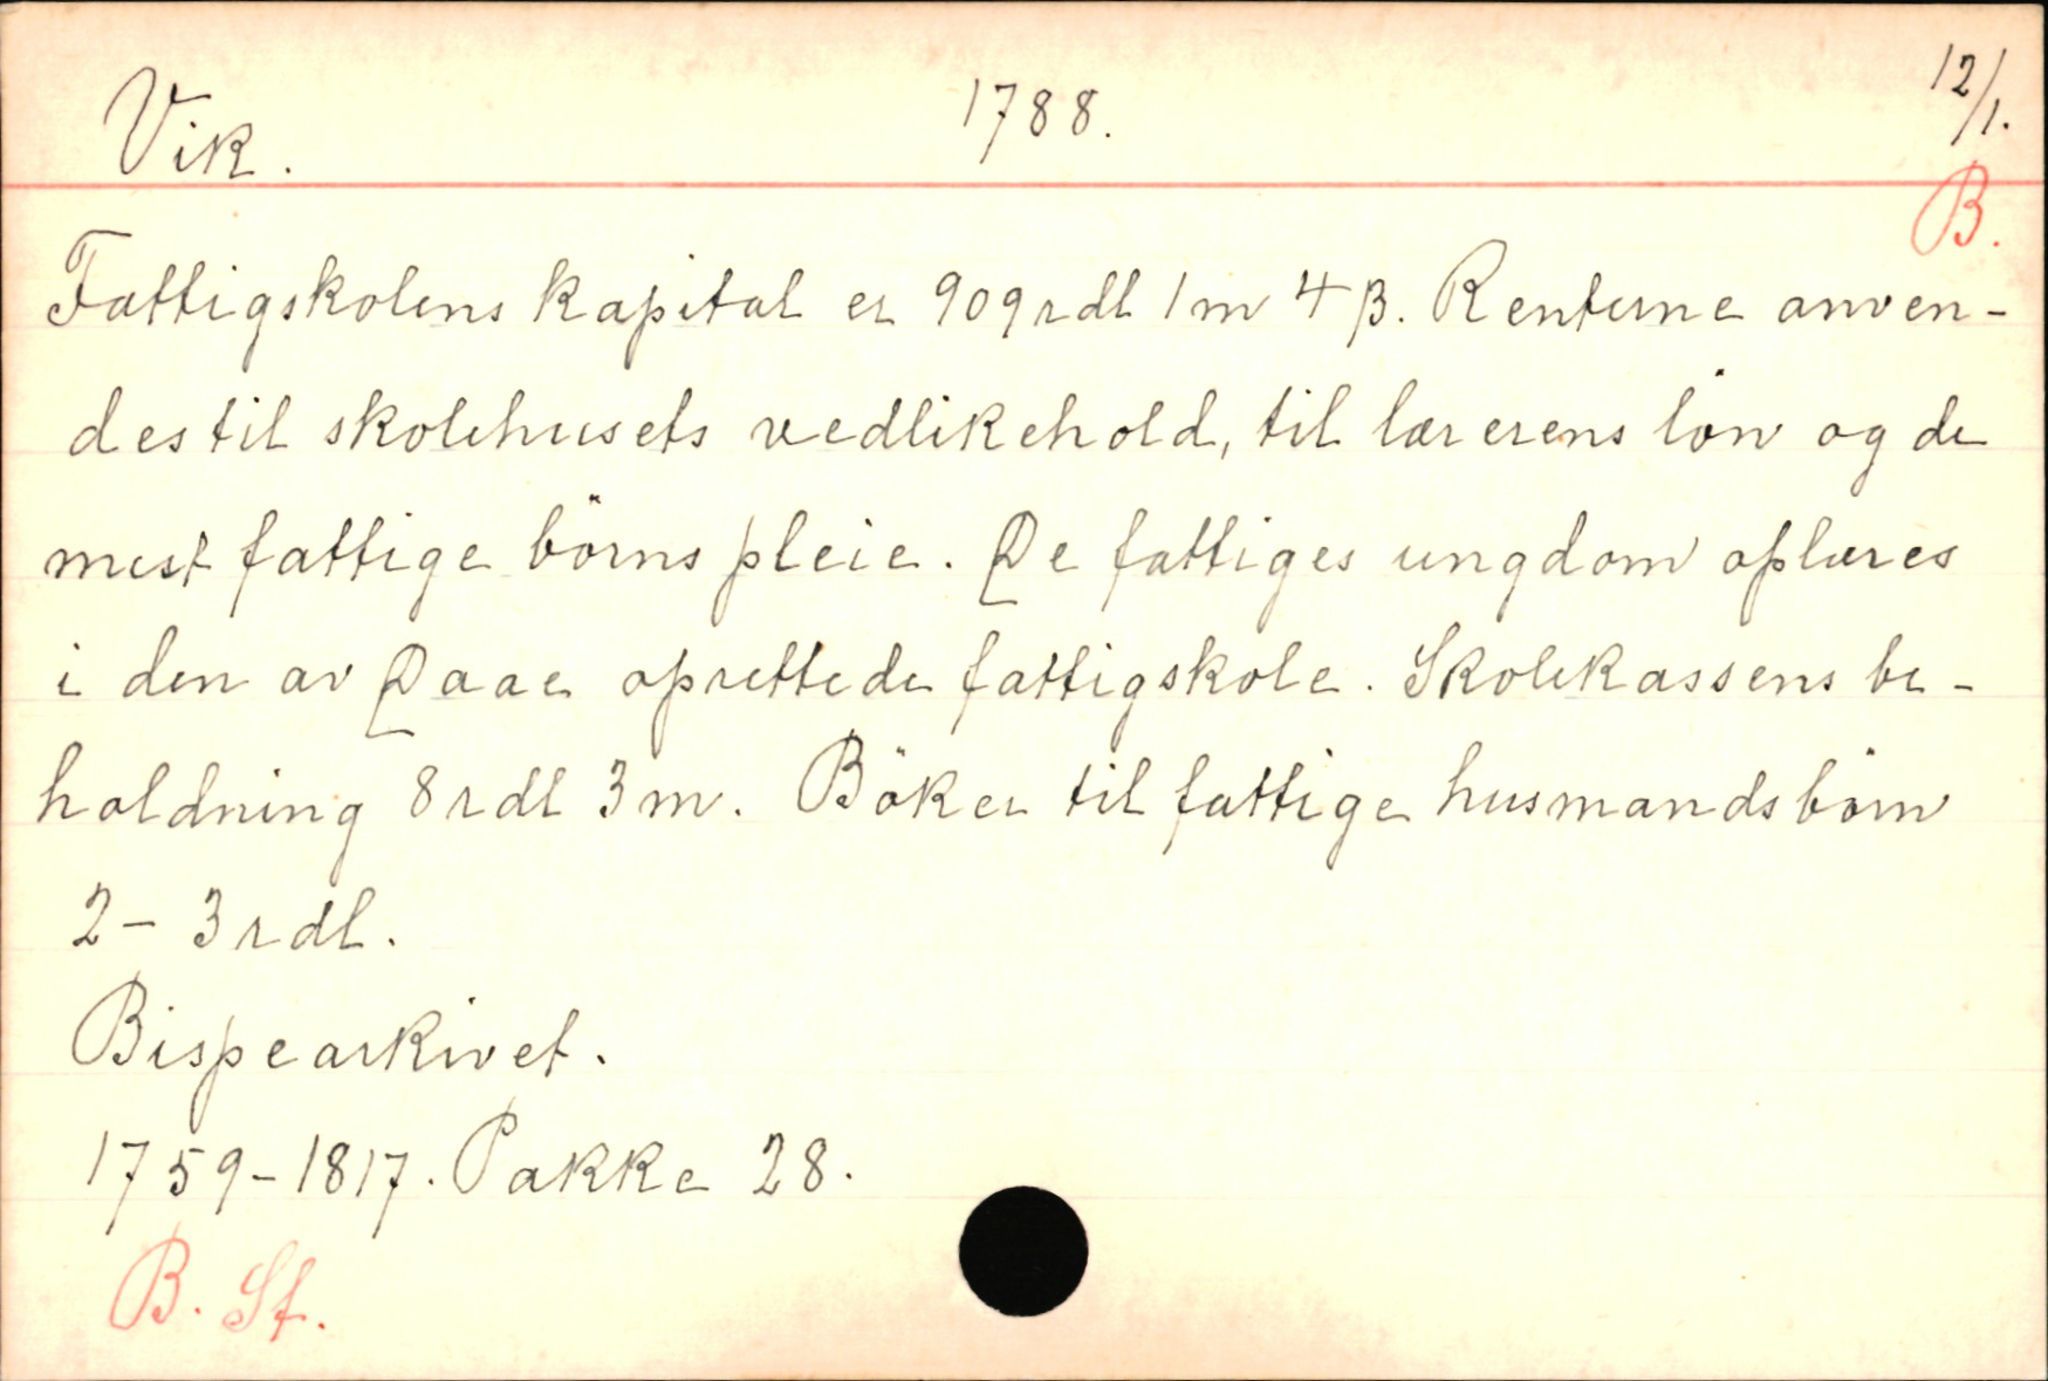 Vik. 1788. 12/1.
B.
Fattigskolens kapital er 909 rdl 1 m 4 β. Renterne anven-
des til skolehusets vedlikehold, til lærerens lön og de
mest fattige börns pleie. De fattiges ungdom oplæres
i den av Daae oprettede fattigskole. Skolekassens be-
holdning 8 rdl 3 m. Böker til fattige husmandsbörn
2 - 3 rdl.
Bispearkivet.
1759 - 1817. Pakke 28.
B. Sf.